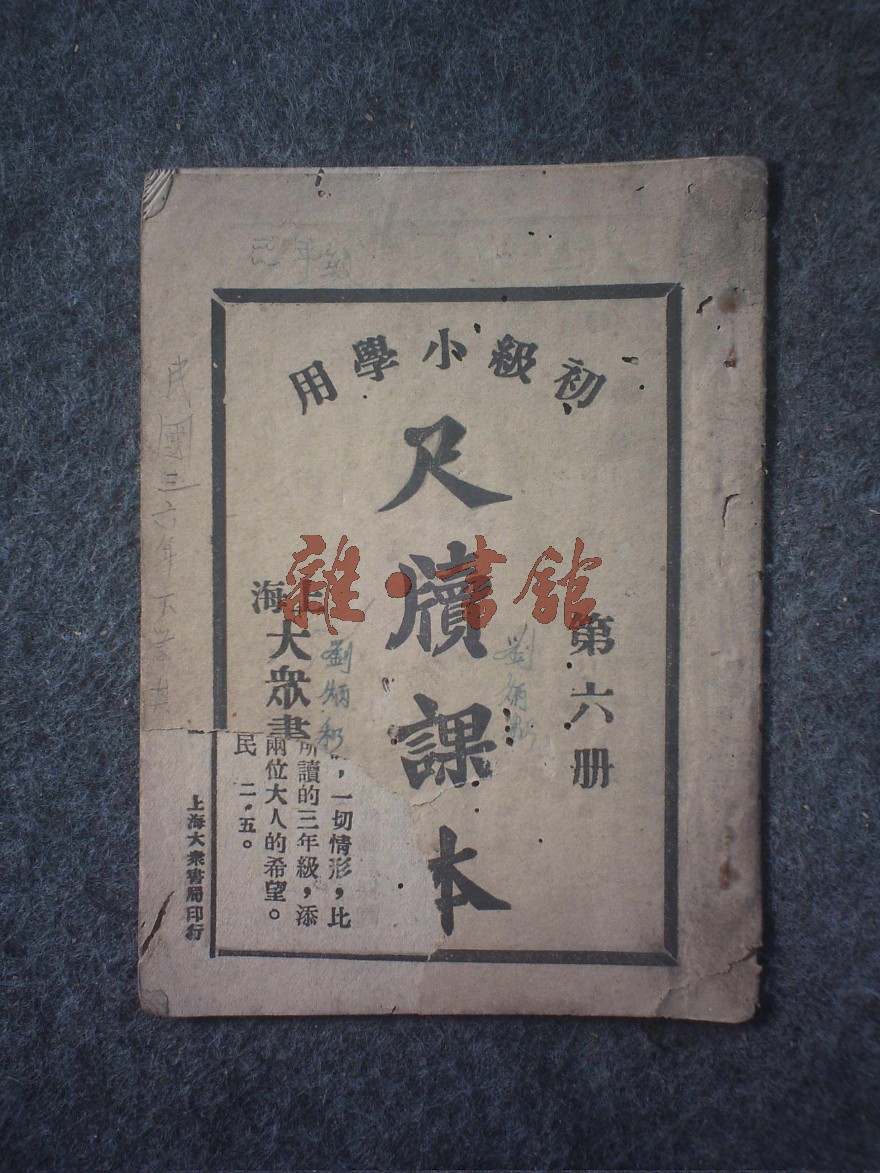 初級小學用
尺牘課本
第六册
上海
大衆書
劉炳
民國三六年下
雜·書館
，一切情形，比
所讀的三年級，添
兩位大人的希望。
民 二．五。
上海大衆書局印行